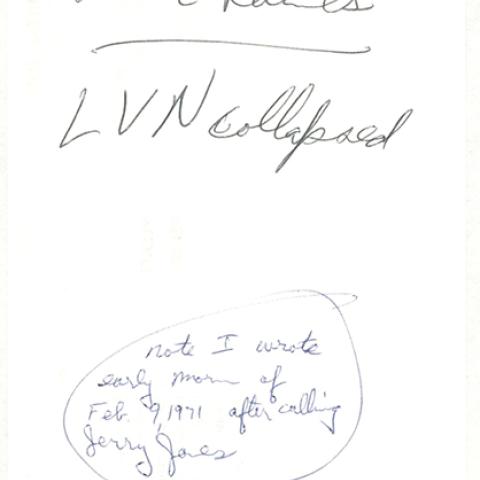 LVN collapsed
note I wrote
early morn of
Feb. 9, 1971 after calling
Jerry Jones